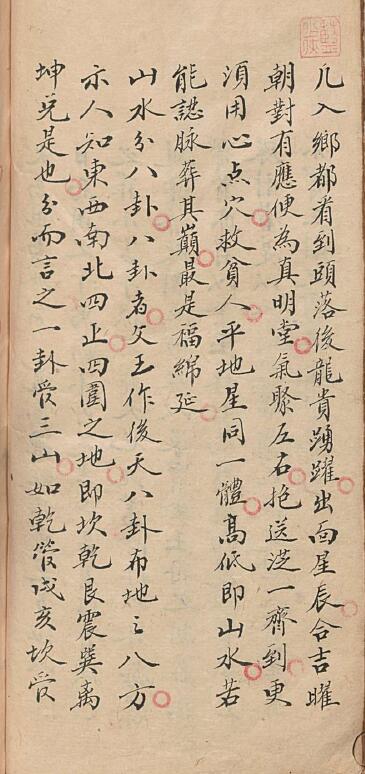 凡入鄉都看到頭落後龍貴踴躍出面星辰合吉曜
朝對有應便為真明堂氣聚左右抱送迎一齊到更
須用心点穴救貧人平地星同一體高低即山水若
能認脉葬其巔最是福綿延
山水分八卦八卦者文王作後天八卦布地之八方
示人知東西南北四正四圍之地即坎乾艮震巽离
坤兌是也分而言之一卦管三山如乾管戌亥坎管